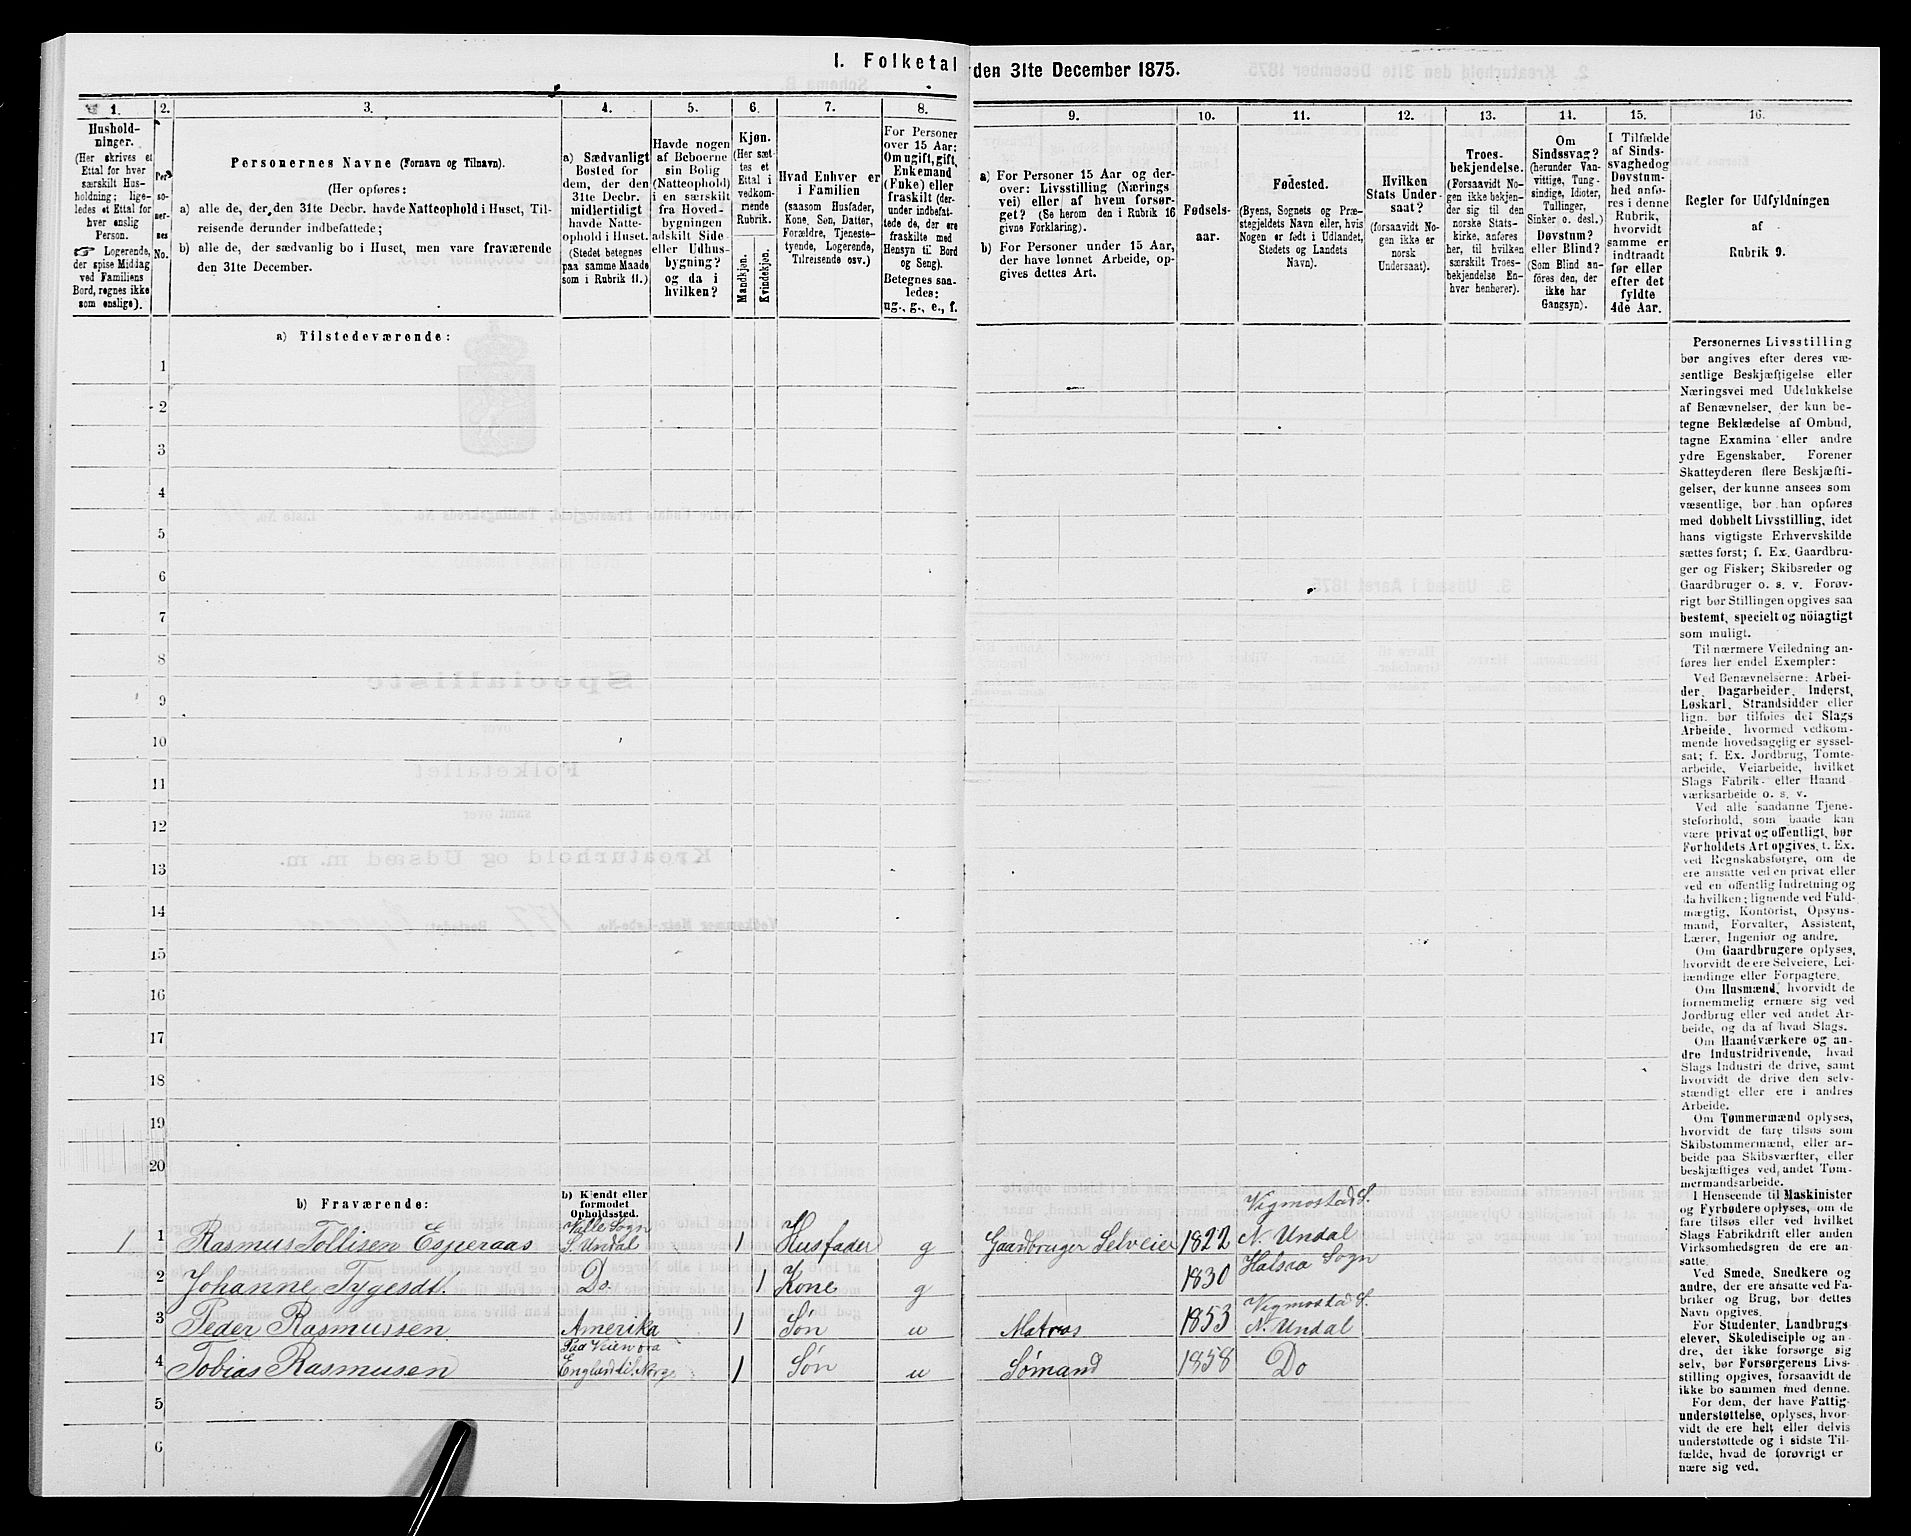 I. Folketal den 31te December 1875.
1.
2.
3.
4.
5.
6.
7.
8.
9.
10.
11.
12.
13.
14.
15.
16.
Hushold-
ninger.
(Her skrives et
Ettal for hver
særskilt Hus-
holdning; lige-
ledes et Ettal for
hver enslig
Person.
☞ Logerende,
der spise Middag
ved Familiens
Bord, regnes ikke
som enslige).
Per-
so-
ner-
nes
No.
Personernes Navne (Fornavn og Tilnavn).
(Her opføres:
a) alle de, der den 31te Decbr. havde Natteophold i Huset, Til-
reisende derunder indbefattede;
b) alle de, der sædvanlig bo i Huset, men vare fraværende
den 31te December.
a) Sædvanligt
Bosted for
dem, der den
31te Decbr.
midlertidigt
havde Natte-
ophold i Huset.
(Stedet betegnes
paa samme Maade
som i Rubrik 11.)
Havde nogen
af Beboerne
sin Bolig
(Natteophold)
i en særskilt
fra Hoved-
bygningen
adskilt Side
eller Udhus-
bygning?
og da i
hvilken?
Kjøn.
(Her sæt-
tes et
Ettal i
vedkom-
mende
Rubrik.
Mandkjøn.
Kvindekjøn.
Hvad Enhver er
i Familien
(saasom Husfader,
Kone, Søn, Datter,
Forældre, Tjeneste-
tyende, Logerende,
Tilreisende osv.)
For Personer
over 15 Aar:
Om ugift, gift,
Enkemand
(Enke) eller
fraskilt (der-
under indbefat-
tede de, der ere
fraskilte med
Hensyn til Bord
og Seng).
Betegnes saa-
ledes:
ug., g., e., f.
a) For Personer 15 Aar og der-
over: Livsstilling (Nærings
vei) eller af hvem forsør-
get? (Se herom den i Rubrik 16
givne Forklaring).
b) For Personer under 15 Aar,
der have lønnet Arbeide, op-
gives dettes Art.
Fødsels-
aar.
Fødested.
(Byens, Sognets og Præ-
stegjeldets Navn eller, hvis
Nogen er født i Udlandet,
Stedets og Landets
Navn).
Hvilken
Stats Under-
saat?
(forsaavidt No-
gen ikke er
norsk
Undersaat).
Troes-
bekjendelse.
(Forsaavidt No-
gen ikke bekjen-
der sig til den
norske Stats-
kirke, anføres
her, til hvilken
særskilt Troes-
bekjendelse En-
hver henhører).
Om
Sindssvag?
(herunder Van-
vittige, Tung-
sindige, Idioter,
Tullinger,
Sinker o. desl.)
Døvstum?
eller Blind?
(Som Blind an-
føres den, der
ikke har
Gangsyn).
I Tilfælde
af Sinds-
svaghed og
Døvstum-
hed anfø-
res i denne
Rubrik,
hvorvidt
samme er
indtraadt
før eller
efter det
fyldte
4de Aar.
Regler for Udfyldningen
af
Rubrik 9.
a) Tilstedeværende:
1
2
3
4
5
6
7
8
9
10
11
12
13
14
15
16
17
18
19
20
b) Fraværende:
b) Kjendt eller
formodet
Opholdssted.
1 1 Rasmus Tollisen Esperaas Valle Sogn S. Undal 1 Husfader g Gaardbruger Selveier 1822 Vigmostad S. N. Undal
2 Johanne Tygesdt. Do. 1 Kone g 1830 Halsaa Sogn
3 Peder Rasmussen Amerika 1 Søn u Matros 1853 Vigmostad S. N. Undal
4 Tobias Rasmusen Paa Veien fra England til Norge 1 Søn u Sømand 1858 Do
5
6
Personernes Livsstilling
bør angives efter deres væ-
sentlige Beskjæftigelse eller
Næringsvei med Udelukkelse
af Benævnelser, der kun be-
tegne Beklædelse af Ombud,
tagne Examina eller andre
ydre Egenskaber. Forener
Skatteyderen flere Beskjæfti-
gelser, der kunne ansees som
væsentlige, bør han opføres
med dobbelt Livsstilling, idet
hans vigtigste Erhvervskilde
sættes først; f. Ex. Gaardbru-
ger og Fisker; Skibsreder og
Gaardbruger o. s. v. Forøv-
rigt bør Stillingen opgives saa
bestemt, specielt og nöiagtigt
som muligt.
Til nærmere Veiledning an-
føres her endel Exempler:
Ved Benævnelserne: Arbei-
der, Dagarbeider, Inderst,
Løskarl, Strandsidder eller
lign. bør tilføies det Slags
Arbeide, hvormed vedkom-
mende hovedsagelig er syssel-
sat; f. Ex. Jordbrug, Tomte-
arbeide, Veiarbeide, hvilket
Slags Fabrik- eller Haand
værksarbeide o. s. v.
Ved alle saadanne Tjene-
steforhold, som baade kan
være privat og offentligt, bør
Forholdets Art opgives, t. Ex.
ved Regnskabsførere, om de
ere ansatte ved en privat eller
ved en offentlig Indretning og
da hvilken; lignende ved Fuld-
mægtig, Kontorist, Opsyns-
mand, Forvalter, Assistent,
Lærer, Ingeniør og andre.
Om Gaardbrugere oplyses,
hvorvidt de ere Selveiere, Lei-
lændinge eller Forpagtere.
Om Husmænd, hvorvidt de
fornemmelig ernære sig ved
Jordbrug eller ved andet Ar-
beide, og da af hvad Slags.
Om Haandværkere og an-
dre Industridrivende, hvad
Slags Industri de drive, samt
hvorvidt de drive den selv-
stændigt eller ere i andres
Arbeide.
Om Tømmermænd oplyses,
hvorvidt de fare tilsøs som
Skibstømmermænd, eller ar-
beide paa Skibsværfter, eller
beskjæftiges ved andet Tøm-
mermandsarbeide.
I Henseende til Maskinister
og Fyrbødere oplyses, om de
fare tilsøs eller ved hvilket
Fabrikdrift eller anden
Virksomhedsgren de ere an-
satte.
Ved Smede, Snedkere og
andre, der ere ansatte ved Fa-
briker og Brug, bør dettes
Navn opgives.
For Studenter, Landbrugs
elever, Skoledisciple og an-
dre, der ikke forsørge sig
selv, bør Forsørgerens Livs-
stilling opgives, forsaavidt de
ikke bo sammen med denne.
For dem, der have Fattig-
understøttelse, oplyses, hvor-
vidt de ere helt eller delvis
understøttede og i sidste Til-
fælde, hvad de forøvrigt er-
nære sig ved.